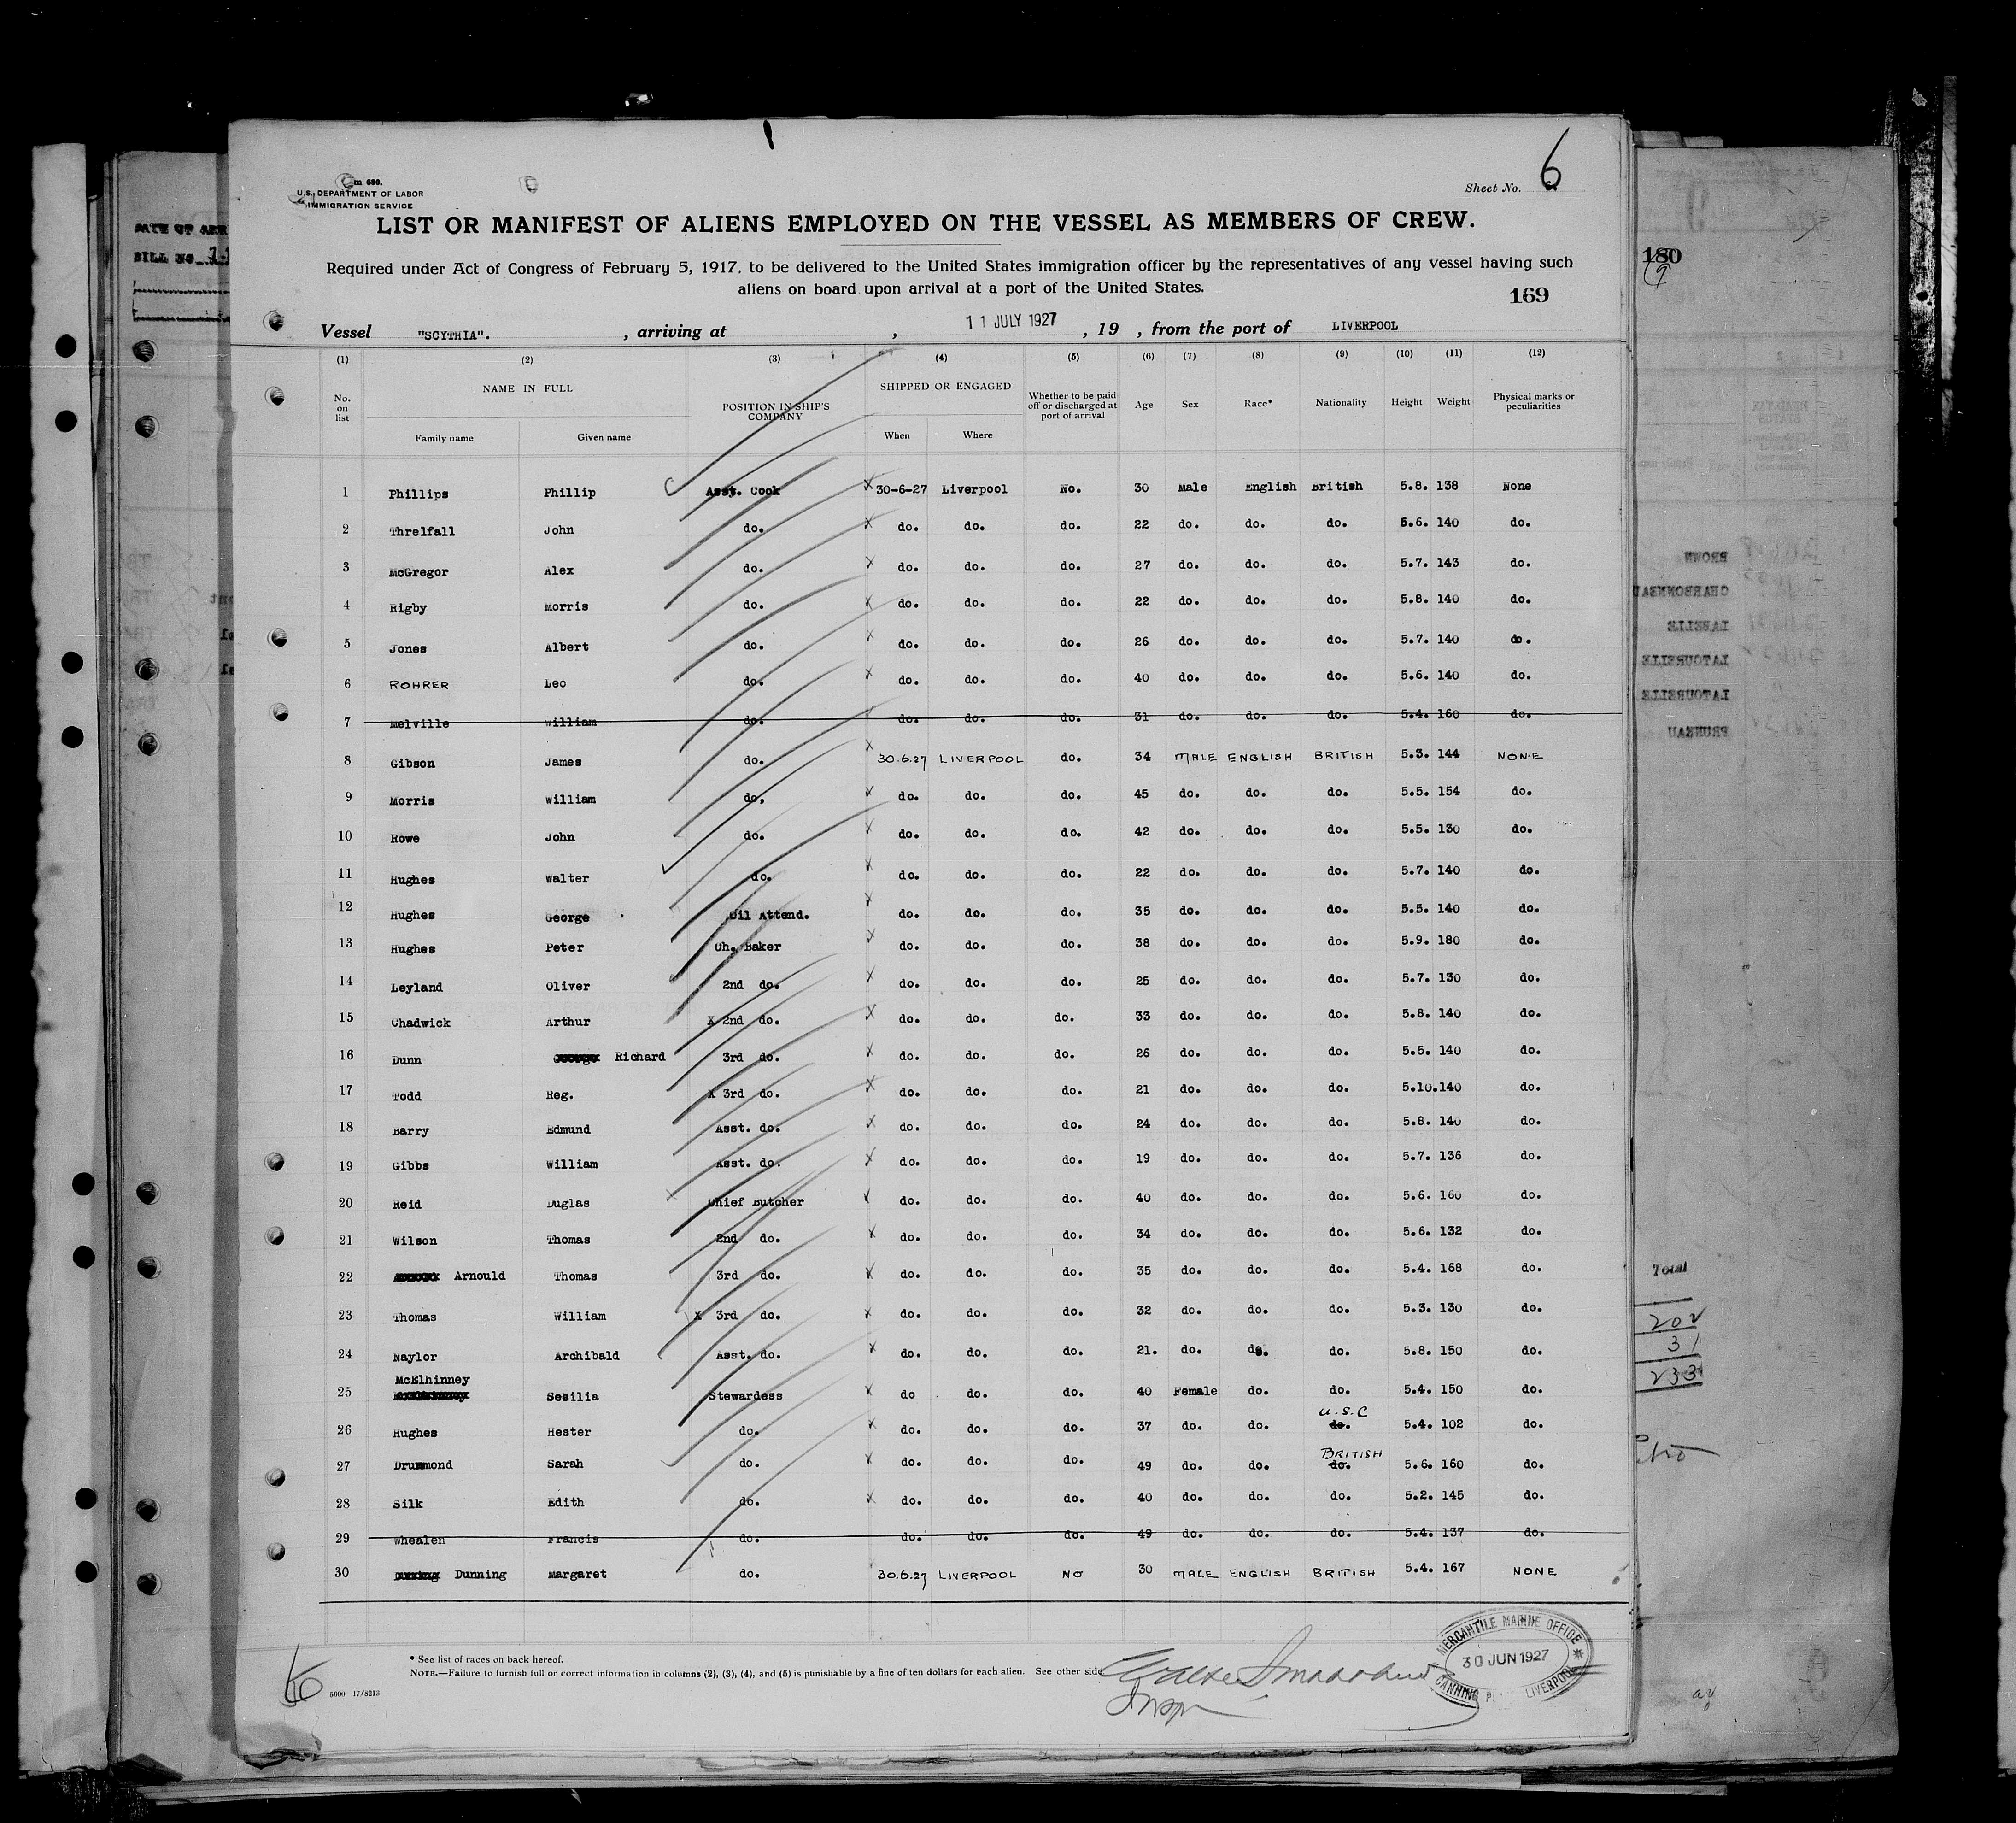 6
Sheet No.
U.S. DEPARTMENT OF LABOR
IMMIGRATION SERVICE
LIST OR MANIFEST OF ALIENS EMPLOYED ON THE VESSEL AS MEMBERS OF CREW.
Required under Act of Congress of February 5, 1917, to be delivered to the United States immigration officer by the representatives of any vessel having such
aliens on board upon arrival at a port of the United States.
169
180
Vessel "SCYTHIA". , arriving at , 11 JULY 1927 , 19 , from the port of LIVERPOOL
(1) (2) (3) (4) (5) (6) (7) (8) (9) (10) (11) (12)
No. on list NAME IN FULL Family name Given name POSITION IN SHIP'S COMPANY SHIPPED OR ENGAGED When Where Whether to be paid off or discharged at port of arrival Age Sex Race* Nationality Height Weight Physical marks or peculiarities
1 Phillips Phillip Asst. Cook X 30-6-27 Liverpool No. 30 Male English British 5.8. 138 None
2 Threlfall John do. X do. do. do. 22 do. do. do. 5.6. 140 do.
3 McGregor Alex do. X do. do. do. 27 do. do. do. 5.7. 143 do.
4 Rigby Morris do. X do. do. do. 22 do. do. do. 5.8. 140 do.
5 Jones Albert do. X do. do. do. 26 do. do. do. 5.7. 140 do.
6 ROHRER Leo do. X do. do. do. 40 do. do. do. 5.6. 140 do.
7 Melville William do. do. do. do. 31 do. do. do. 5.4. 160 do.
8 Gibson James do. X 30.6.27 LIVERPOOL do. 34 MALE ENGLISH BRITISH 5.3. 144 NONE
9 Morris William do, X do. do. do. 45 do. do. do. 5.5. 154 do.
10 Rowe John do. X do. do. do. 42 do. do. do. 5.5. 130 do.
11 Hughes Walter do. X do. do. do. 22 do. do. do. 5.7. 140 do.
12 Hughes George Oil Attend. X do. do. do. 35 do. do. do. 5.5. 140 do.
13 Hughes Peter Ch. Baker X do. do. do. 38 do. do. do. 5.9. 180 do.
14 Leyland Oliver 2nd do. X do. do. do. 25 do. do. do. 5.7. 130 do.
15 Chadwick Arthur X 2nd do. X do. do. do. 33 do. do. do. 5.8. 140 do.
16 Dunn Richard 3rd do. X do. do. do. 26 do. do. do. 5.5. 140 do.
17 Todd Reg. X 3rd do. X do. do. do. 21 do. do. do. 5.10. 140 do.
18 Barry Edmund Asst. do. X do. do. do. 24 do. do. do. 5.8. 140 do.
19 Gibbs William Asst. do. X do. do. do. 19 do. do. do. 5.7. 136 do.
20 Reid Duglas Chief Butcher X do. do. do. 40 do. do. do. 5.6. 160 do.
21 Wilson Thomas 2nd do. X do. do. do. 34 do. do. do. 5.6. 132 do.
22 Arnould Thomas 3rd do. X do. do. do. 35 do. do. do. 5.4. 168 do.
23 Thomas William X 3rd do. X do. do. do. 32 do. do. do. 5.3. 130 do.
24 Naylor Archibald Asst. do. X do. do. do. 21. do. do. do. 5.8. 150 do.
25 McElhinney Sesilia Stewardess X do do. do. 40 Female do. do. 5.4. 150 do.
26 Hughes Hester do. X do. do. do. 37 do. do. do. U.S.C 5.4. 102 do.
27 Drummond Sarah do. X do. do. do. 49 do. do. do. BRITISH 5.6. 160 do.
28 Silk Edith do. X do. do. do. 40 do. do. do. 5.2. 145 do.
29 Whealen Francis do. do. do. do. 49 do. do. do. 5.4. 137 do.
30 Dunning Margaret do. 30.6.27 LIVERPOOL NO 30 MALE ENGLISH BRITISH 5.4. 167 NONE
* See list of races on back hereof.
NOTE.—Failure to furnish full or correct information in columns (2), (3), (4), and (5) is punishable by a fine of ten dollars for each alien. See other side
5000 17/8213
MERCANTILE MARINE OFFICE
30 JUN 1927
CANNING LIVERPOOL
BILL NO
BROWN
CHARBONNEAU
LABELLE
LATOURELLE
LATOURELLE
PRUNEAU
Total
202
31
233